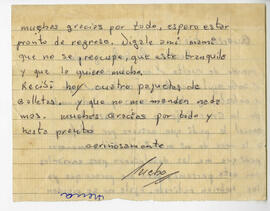 muchas gracias por todo, espero estar
pronto de regreso. Digale a mi mami
que no se preocupe, que este tranquila
y que la quiero mucho.
Recibi hoy cuatro paquetes de
Galletas. y que no me manden nada
mas. muchas Gracias por todo y
hasta pronto
cariñosamente
Lucho